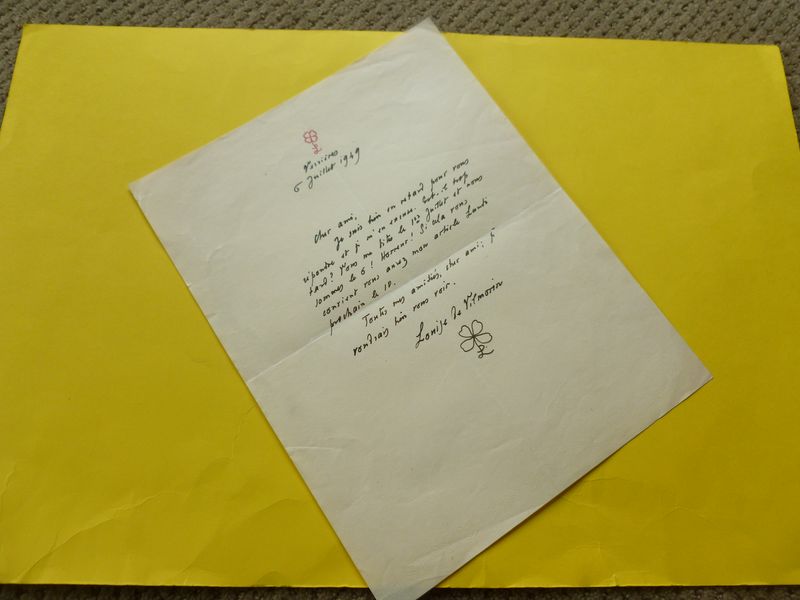 L
Verrières
6 Juillet 1949
Cher ami,
Je suis bien en retard pour vous
répondre et je m'en excuse. Est-il trop
tard? Vous me dites le 1er Juillet et nous
sommes le 6! Horreur! Si cela vous
convient vous aurez mon article Lundi
prochain le 10.
Toutes mes amitiés, cher ami; je
voudrais bien vous voir.
Louise de Vilmorin
L